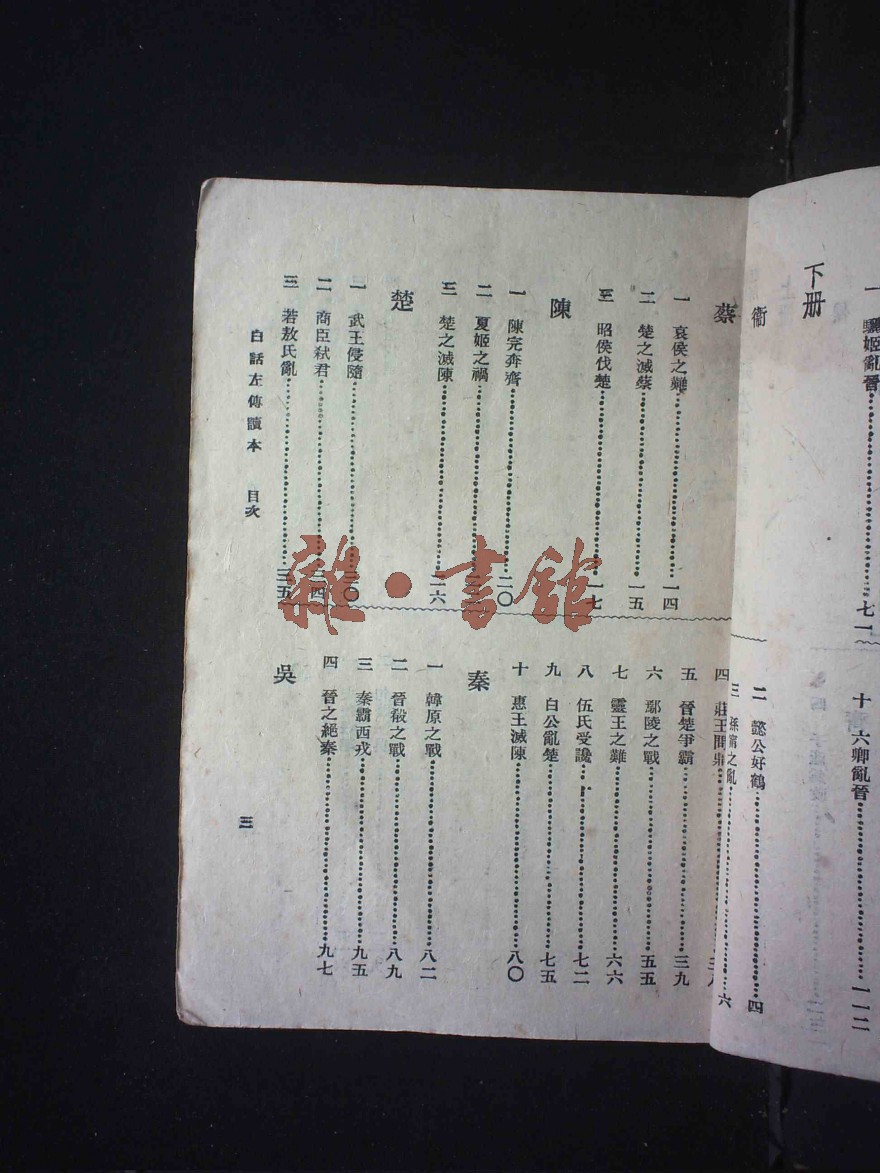 驪姬亂晉 七一
十 六卿亂晉 一一二
下册
衞
二 懿公好鶴 四
三 孫甯之亂 六
蔡
一 哀侯之難 一四
二 楚之滅蔡 一五
三 昭侯伐楚 一七
陳
一 陳完奔齊 二〇
二 夏姬之禍
三 楚之滅陳 二六
楚
一 武王侵隨 三〇
二 商臣弒君 三四
三 若敖氏亂 三五
四 莊王問鼎
五 晉楚爭霸 三九
六 鄢陵之戰 五五
七 靈王之難 六六
八 伍氏受讒 七二
九 白公亂楚 七五
十 惠王滅陳 八〇
秦
一 韓原之戰 八二
二 晉殽之戰 八九
三 秦霸西戎 九五
四 晉之絕秦 九七
吳
白話左傳讀本 目次
三
雜·書館